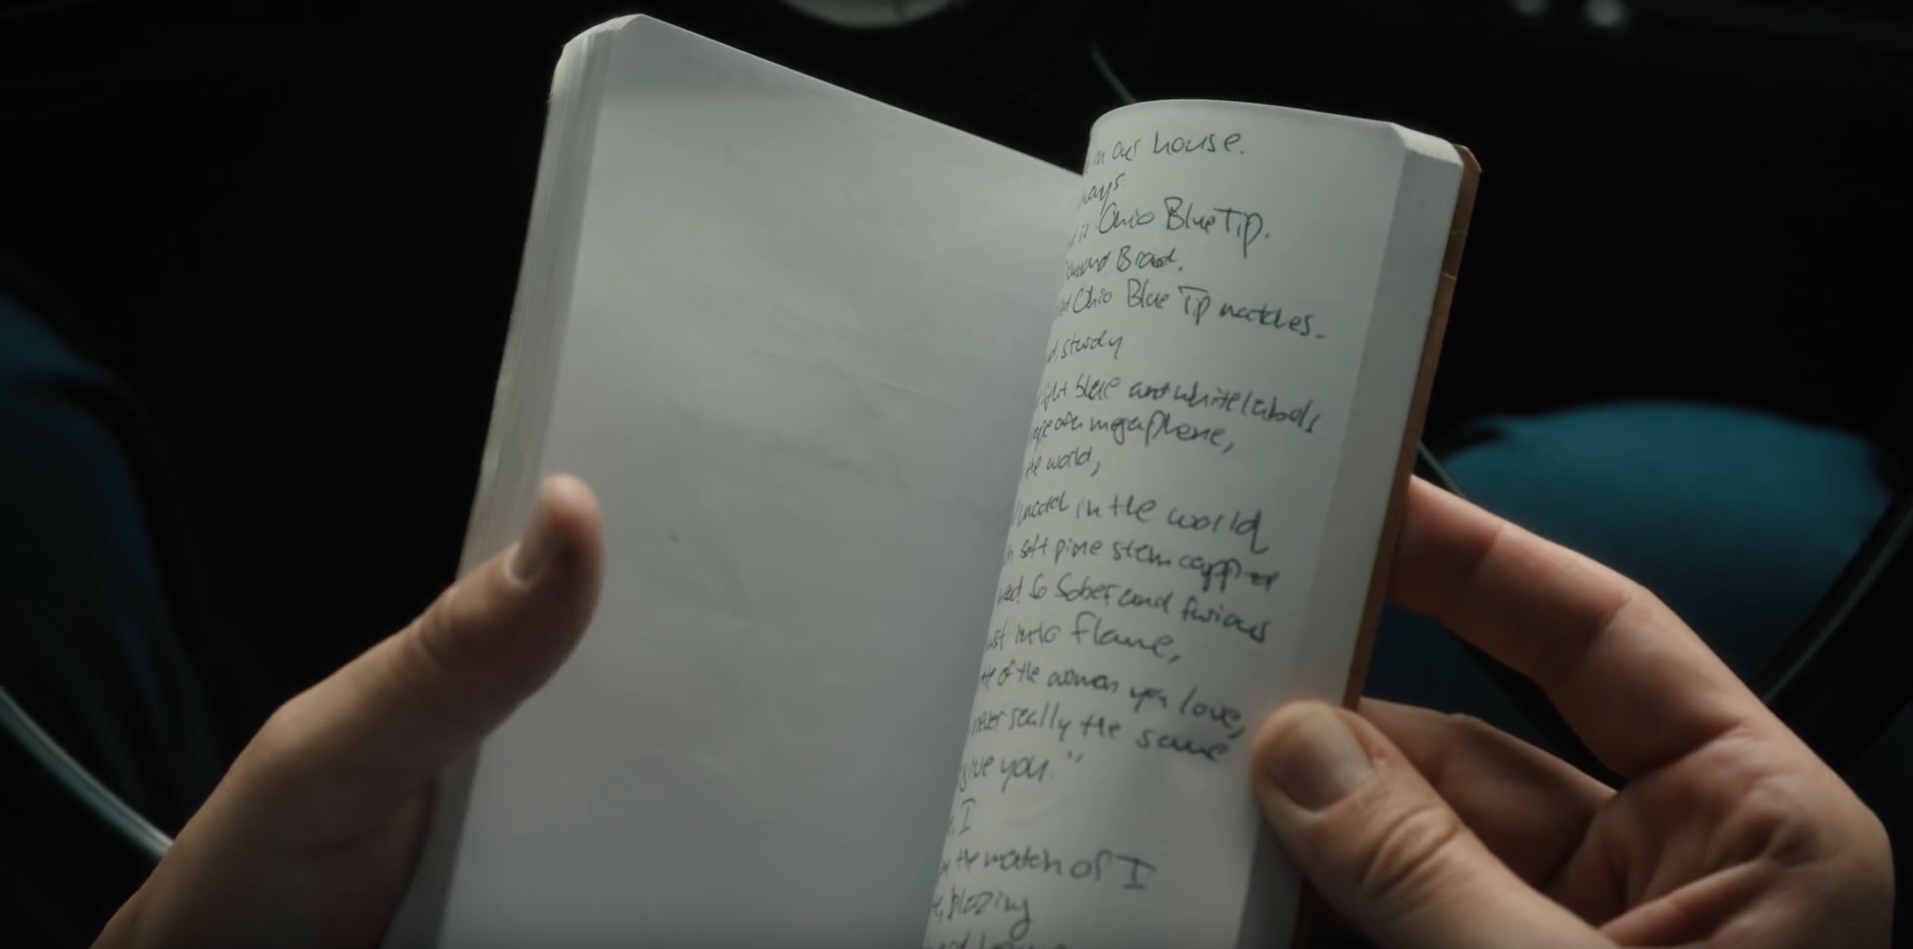 in our house.
Ohio Blue Tip.
Brand.
Ohio Blue Tip matches.
sturdy
blue and white labels
megaphone,
the world,
match in the world
soft pine stem capped
So sober and furious
into flame,
of the woman you love,
never really the same
give you."
I
the match of I
blazing